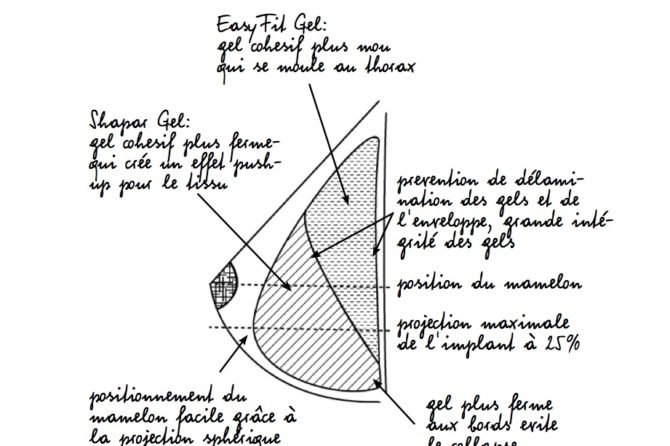 EasyFit Gel:
gel cohesif plus mou
qui se moule au thorax
Shapar Gel:
gel cohesif plus ferme-
qui crée un effet push-
up pour le tissu
prevention de délami-
nation des gels et de
l'enveloppe, grande inté-
grité des gels
position du mamelon
projection maximale
de l'implant à 25%
positionnement du
mamelon facile grâce à
la projection sphérique
gel plus ferme
aux bords evite
le collapse